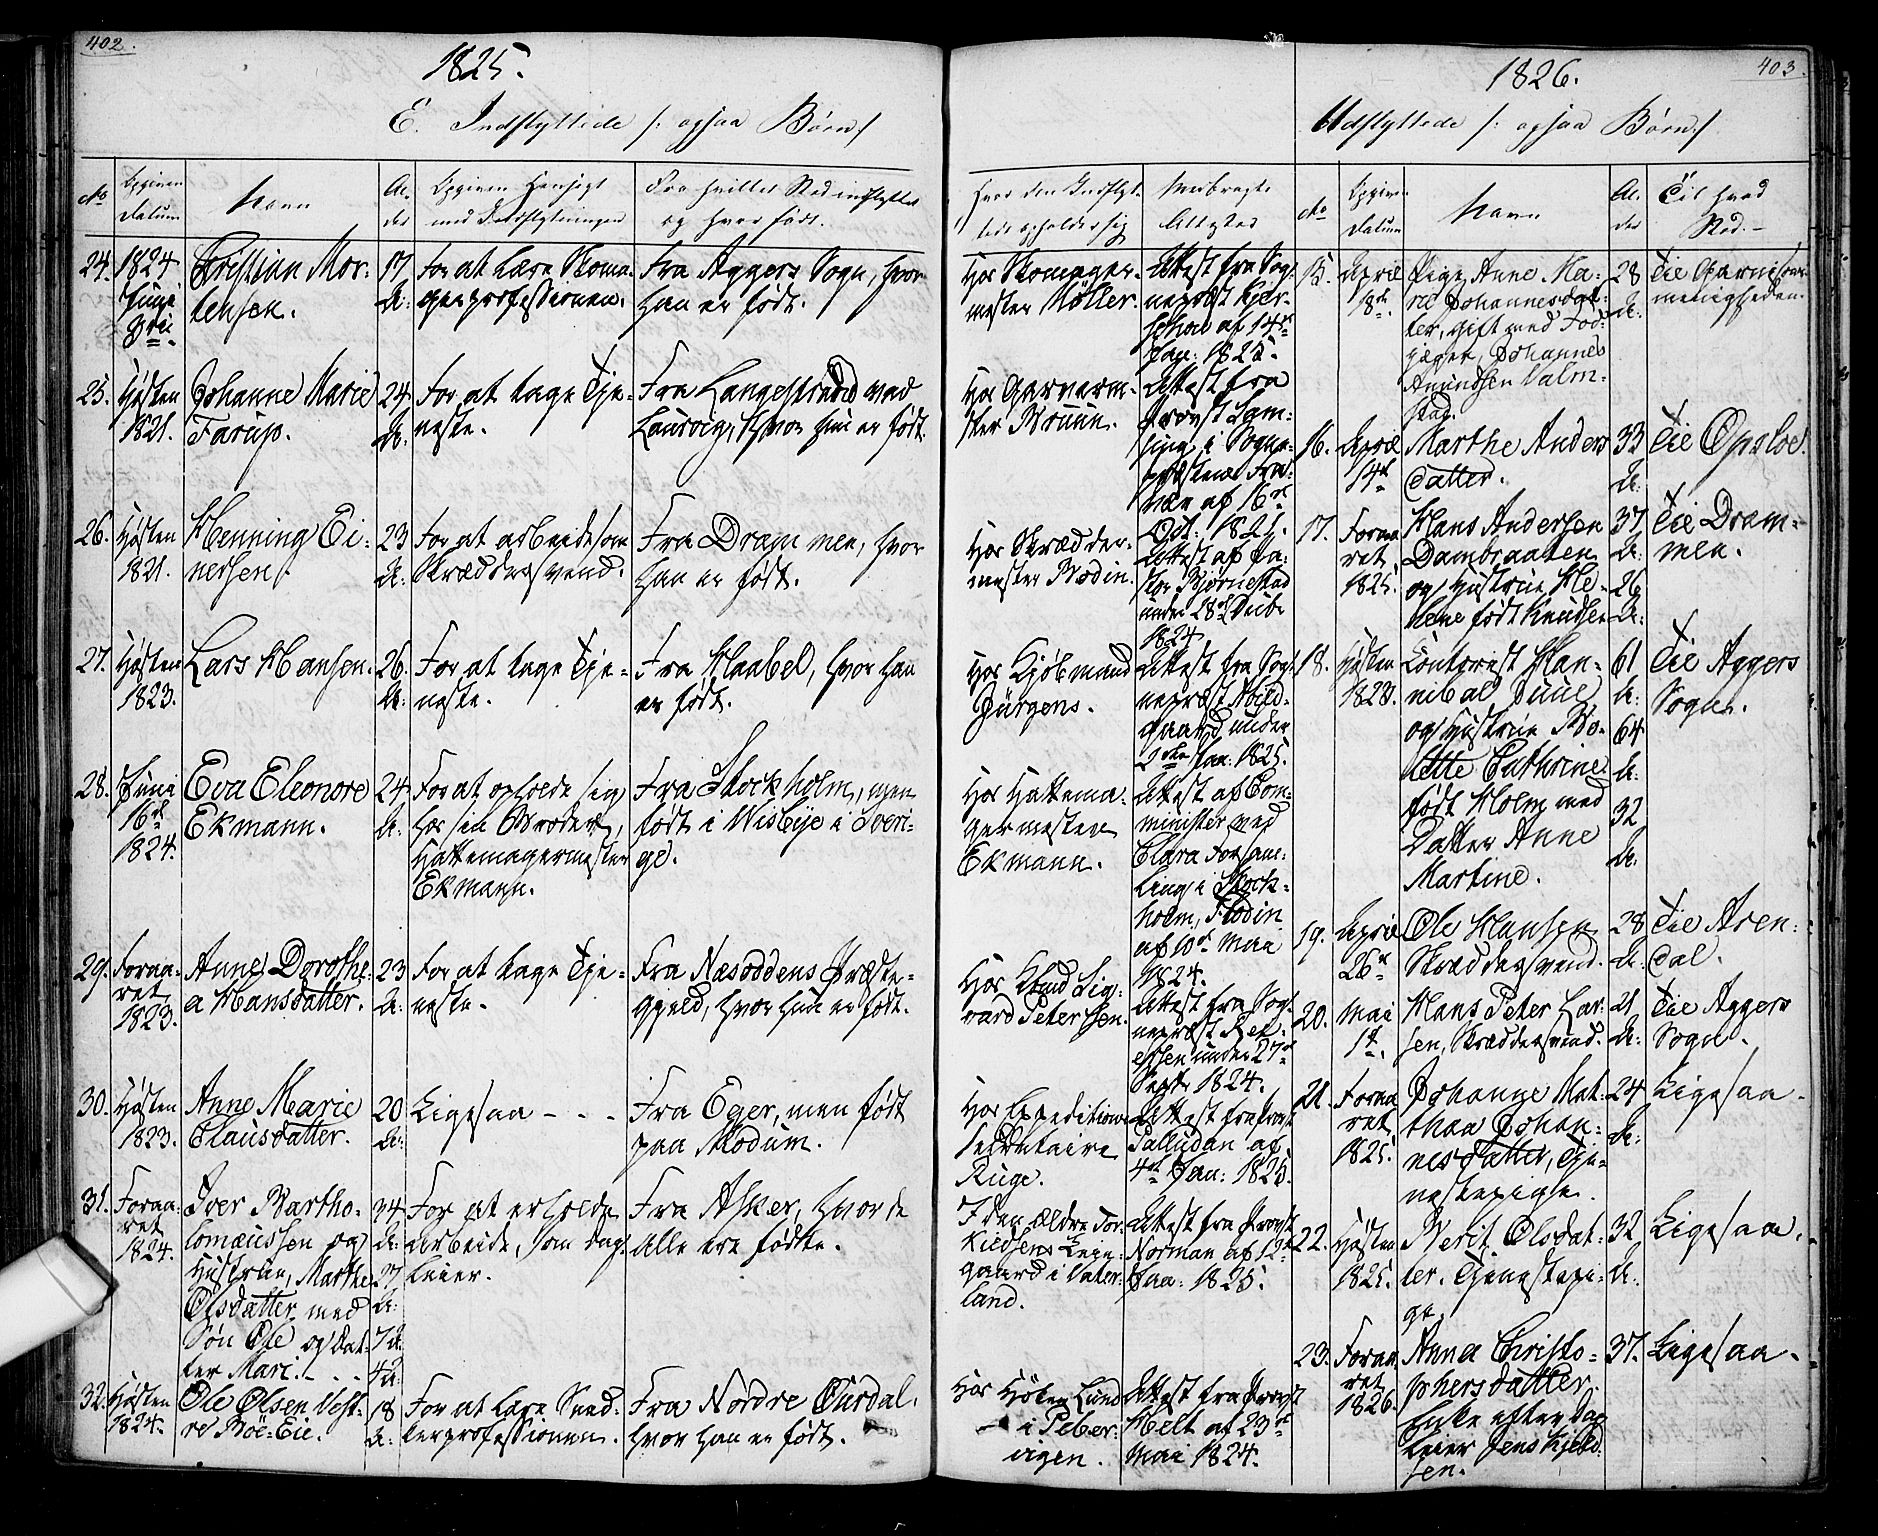 402.
1825.
E. Indflyttede /: ogsaa Børn :/
No
Opgiven Datum
Navn
Al-der
Opgiven Hensigt med Indflytningen
Fra hvilket Sted indflyttet og hvor født.
Hvor den Indflyttede opholder sig
Medbragte Attester
24.
1824
Junii
Cristian Mor-
tensen.
17
A:
For at lære Skoma-
gerprofessionen.
Fra Aggers Sogn, hvor
han er født.
Hos Skomager-
mester Møller.
Attest fra Sog-
nepræst Kjer-
schow af 14de
Jan: 1825.
25.
Høsten
1821.
Johanne Marie
Farup.
24.
A:
For at tage Tje-
neste.
Fra Langestrand ved
Laurvig, hvor hun er født.
Hos Garverm-
ster Bruun.
Attest fra
Provst Sam-
sing, i Sogne-
præstens Fra-
vær af 16de
Oct: 1821.
26.
Høsten
1821.
Henning Ei-
nersen.
23
A:
For at arbeide som
Skræddersvend.
Fra Drammen, hvor
han er født.
Hos Skrædder-
mester Bodin.
Attest af Pa-
stor Bjørnestad
under 28de Decbr
1824.
27.
Høsten
1823.
Lars Hansen.
26.
A:
For at tage Tje-
neste.
Fra Haabel, hvor han
er født.
Hos Kjøbmand
Jürgens.
Attest fra Sog-
nepræst Abild-
gaard under
Jan: 1825.
28.
Juni
16de
1824.
Eva Eleonore
Ekmann.
24
A:
For at opholde sig
hos sin Broder,
Hattemagermester
Ekmann.
Fra Stockholm, men
født i Wisbye i Sveri-
ge.
Hos Hattema-
germester
Ekmann.
Attest af Com-
minister ved
Clara Forsam-
ling i Stock-
holm, Flodin
af 10de Mai
1824.
29.
Foraa-
ret
1823.
Anne Dorothe-
a Hansdatter.
23
A:
For at tage Tje-
neste.
Fra Næsoddens Præste-
gjeld, hvor hun er født.
Hos Knud Sig-
vard Petersen.
Attest fra Sog-
nepræst
under 27de
Septbr 1824.
30.
Høsten
1823.
Anne Marie
Clausdatter.
20
A:
Ligesaa - - -
Fra Eger, men født
paa Modum.
Hos Expeditions
secretaire
Ruge.
Attest fra Provst
Palludan af
4de Jan: 1825.
31.
Foraa-
ret
1824.
Iver Bartho-
lomæussen og
Hustrue, Marthe
Olsdatter med
Søn Ole og Dat-
ter Mari. - - -
34
A:
27
A:
7 A
4 A
For at erholde
Arbeide, som Dag-
leier.
Fra Asker, hvor de
Alle ere fødte.
I den ældre Tor-
kildsens Leie-
gaard i Vater-
land.
Attest fra Provst
Norman af 12te
Jan: 1825.
32.
Høsten
1824.
Ole Olsen Vest-
re Bøe-Eie.
18
A:
For at lære Sned-
kerprofessionen.
Fra Nordre Ourdal,
hvor han er født.
Hos Høker Lund
i Peber-
vigen.
Attest fra Provst
Helt af 23de
Mai 1824.
403.
1826.
Udflyttede /: ogsaa Børn :/
No
Opgiven Datum
Navn
Al-der
Til hvad Sted.
15.
April
18de.
Pige Anne Ma-
rie Johannesdat-
ter, gift med Fod-
jæger, Johannes
Amundsen Valm-
stad.
28
A:
Til Garnisons
menigheden.
16.
April
14de
Marthe Anders
datter.
33
A:
Til Opsloe.
17.
Foraa
ret
1825.
Hans Andersen
Dambraaten
og Hustrue He-
lene født Knudsen
37.
A:
26
A:
Til Dram-
men.
18.
Høsten
1823.
Contorist Han-
nibal Juul
og Hustrue Bo-
lette Cathrine
født Holm med
Datter Anne
Martine.
61
A:
64
A:
32
A:
Til Aggers
Sogn.
19.
April
26de
Ole Hansen
Skræddersvend.
28
A:
Til Aren-
dal.
20.
Mai
1ste.
Hans Peter Lar-
sen, Skræddersvend.
21
A:
Til Aggers
Sogn.
21.
Foraa
ret
1825.
Johanne Mat-
thea Johan-
nesdatter, Tje-
nestepige.
24
A:
Ligesaa.
22.
Høsten
1825.
Berit Olsdat-
ter. Tjenestepi-
ge.
32
A:
Ligesaa.
23.
Foraa
ret
1826.
Anna Christo-
phersdatter.
Enke efter Dag
leier Jens Kjeld-
sen.
37.
Ligesaa.